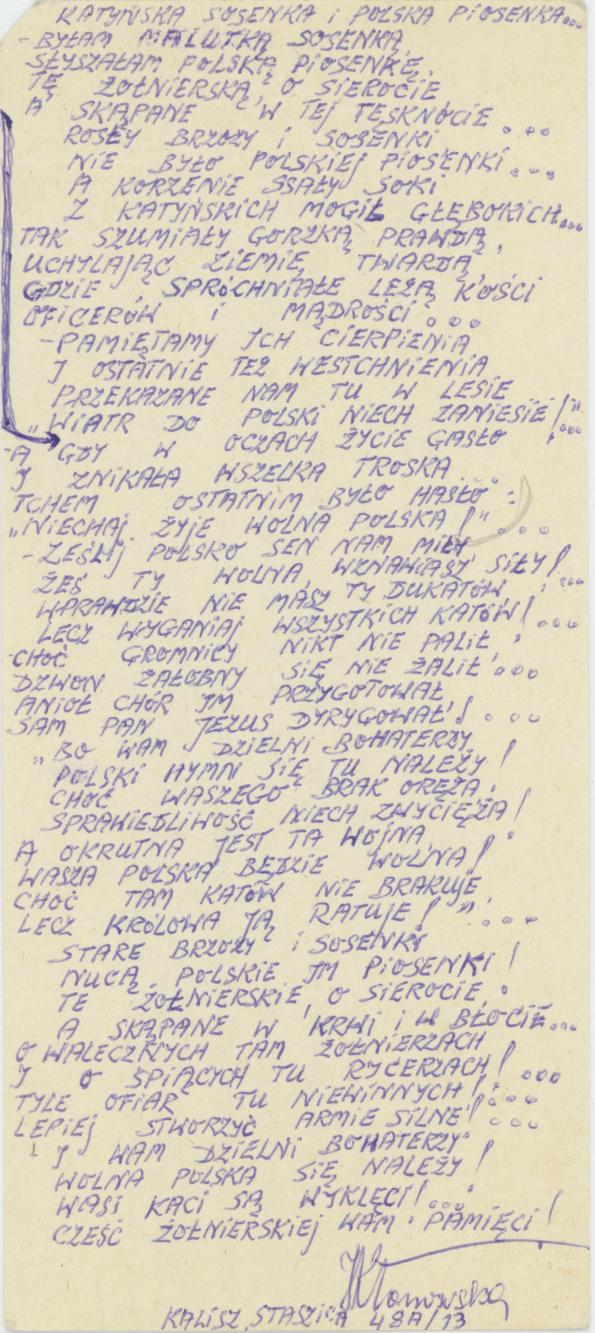 KATYŃSKA SOSENKA I POLSKA PIOSENKA...
- BYŁAM MALUTKĄ SOSENKĄ,
SŁYSZAŁAM POLSKĄ PIOSENKĘ,
TĘ ŻOŁNIERSKĄ, O SIEROCIE
A SKĄPANE W TEJ TĘSKNOCIE ...
ROSŁY BRZOZY I SOSENKI
NIE BYŁO POLSKIEJ PIOSENKI...
A KORZENIE SSAŁY SOKI
Z KATYŃSKICH MOGIŁ GŁĘBOKICH...
TAK SZUMIAŁY GORZKĄ PRAWDĄ,
UCHYLAJĄC ZIEMIĘ TWARDĄ,
GDZIE SPRÓCHNIAŁE LEŻĄ KOŚCI
OFICERÓW I MĄDROŚCI...
- PAMIĘTAMY ICH CIERPIENIA
I OSTATNIE TEŻ WESTCHNIENIA
PRZEKAZANE NAM TU W LESIE
„WIATR DO POLSKI NIECH ZANIESIE!"...
- A GDY W OCZACH ŻYCIE GASŁO
I ZNIKAŁA WSZELKA TROSKA
TCHEM OSTATNIM BYŁO HASŁO:
„NIECHAJ ŻYJE WOLNA POLSKA!"...
- ZEŚLIJ POLSKO SEN NAM MIŁY
ŻEŚ TY WOLNA, WZNAWIASZ SIŁY!...
WPRAWDZIE NIE MASZ TY DUKATÓW,
LECZ WYGANIAJ WSZYSTKICH KATÓW!...
- CHOĆ GROMNICY NIKT NIE PALIŁ,
DZWON ŻAŁOBNY SIĘ NIE ŻALIŁ...
ANIOŁ CHÓR IM PRZYGOTOWAŁ
SAM PAN JEZUS DYRYGOWAŁ!...
„BO WAM DZIELNI BOHATERZY
POLSKI HYMN SIĘ TU NALEŻY!
CHOĆ WASZEGO BRAK ORĘŻA,
SPRAWIEDLIWOŚĆ NIECH ZWYCIĘŻA!
A OKRUTNA JEST TA WOJNA,
WASZA POLSKA BĘDZIE WOLNA!
CHOĆ TAM KATÓW NIE BRAKUJE,
LECZ KRÓLOWA JĄ RATUJE!"...
STARE BRZOZY I SOSENKI
NUCĄ POLSKIE IM PIOSENKI!
TE ŻOŁNIERSKIE, O SIEROCIE,
A SKĄPANE W KRWI I W BŁOCIE...
O WALECZNYCH TAM ŻOŁNIERZACH
I O ŚPIĄCYCH TU RYCERZACH!...
TYLE OFIAR TU NIEWINNYCH!...
LEPIEJ STWORZYĆ ARMIE SILNE!...
I WAM DZIELNI BOHATERZY
WOLNA POLSKA SIĘ NALEŻY!
WASI KACI SĄ WYKLĘCI!...
CZEŚĆ ŻOŁNIERSKIEJ WAM PAMIĘCI!
KALISZ, STASZICA 48A/13